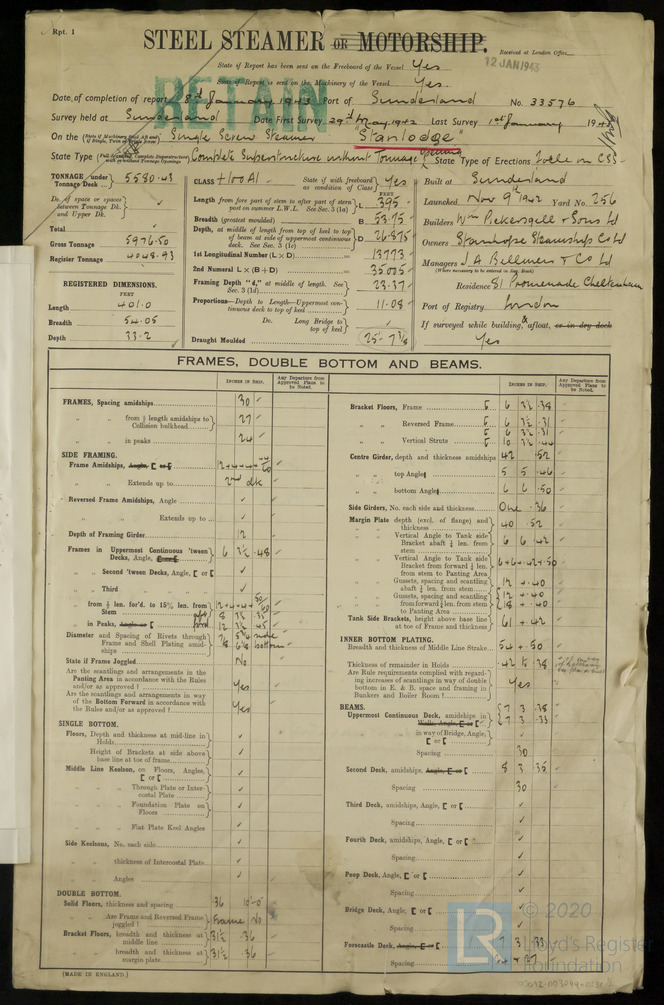 Rpt. 1
STEEL STEAMER OR MOTORSHIP.
Received at London Office
12 JAN 1943
State of Report has been sent on the Freeboard of the Vessel Yes
State of Report is sent on the Machinery of the Vessel Yes.
RETAIN
Date of completion of report 8th January 1943 Port of Sunderland No. 33576
Survey held at Sunderland Date First Survey 29th May 1942 Last Survey 1st January 1943
On the Single Screw Steamer "Stanlodge"
State Type Complete Superstructure without Tonnage Opening State Type of Erections
TONNAGE under Tonnage Deck 5580.43
Do. of space or spaces between Tonnage Dk. and Upper Dk.
Total
Gross Tonnage 5976.50
Register Tonnage 4048.93
REGISTERED DIMENSIONS.
FEET
Length 401.0
Breadth 54.05
Depth 33.2
CLASS +100A1 State if with freeboard as condition of Class Yes
FEET
Length from fore part of stem to after part of stern post on summer L.W.L. See Sec. 3 (1a) L 395
Breadth (greatest moulded) B 53.75
Depth, at middle of length from top of keel to top of beam at side of uppermost continuous deck. See Sec. 3 (1c) D 26.875
1st Longitudinal Number (L × D) 13773
2nd Numeral L × (B + D) 35025
Framing Depth "d," at middle of length. See Sec. 3 (1d) 23.37
Proportions—Depth to Length—Uppermost continuous deck to top of keel 11.08
Do. Long Bridge to top of keel
Draught Moulded
Built at Sunderland
Launched Nov 9th 1942 Yard No. 256
Builders Wm Pickersgill & Sons Ld
Owners Stanhope Steamship Co Ld
Managers J A Billmeir & Co Ld
(Where necessary to be entered in Reg. Book)
Residence 81 Promenade Cheltenham
Port of Registry London
If surveyed while building, & afloat, or in dry dock
Yes
FRAMES, DOUBLE BOTTOM AND BEAMS.
INCHES IN SHIP.
Any Departure from Approved Plans to be Noted.
INCHES IN SHIP.
Any Departure from Approved Plans to be Noted.
FRAMES, Spacing amidships 30
" " from ⅕ length amidships to Collision bulkhead 27
" " in peaks 24
SIDE FRAMING.
Frame Amidships, Angle, [ or
" " Extends up to 2nd dk
Reversed Frame Amidships, Angle
" " Extends up to
Depth of Framing Girder 12
Frames in Uppermost Continuous 'tween Decks, Angle, 6 3½ .48
" Second 'tween Decks, Angle, [ or [
" Third " " "
" from ⅕ len. for'd. to 15% len. from Stem
" in Peaks, Angle or [
Diameter and Spacing of Rivets through Frame and Shell Plating amidships
State if Frame Joggled No
Are the scantlings and arrangements in the Panting Area in accordance with the Rules and/or as approved? Yes
Are the scantlings and arrangements in way of the Bottom Forward in accordance with the Rules and/or as approved? Yes
SINGLE BOTTOM.
Floors, Depth and thickness at mid-line in Holds
Height of Brackets at side above base line at toe of frame
Middle Line Keelson, on Floors, Angles, [ or [
" " Through Plate or Intercostal Plate
" " Foundation Plate on Floors
" " Flat Plate Keel Angles
Side Keelsons, No. each side
" " thickness of Intercostal Plate
" " Angles
DOUBLE BOTTOM.
Solid Floors, thickness and spacing .36 10'-0"
" " Are Frame and Reversed Frame joggled? Frame No
Bracket Floors, breadth and thickness at middle line 31½ .36
" " breadth and thickness at margin plate 31½ .36
Bracket Floors, Frame 6 3½ .38
" " Reversed Frame 6 3½ .31
" " Vertical Struts
Centre Girder, depth and thickness amidships 42 .52
" " top Angles 5 5 .46
" " bottom Angles 6 6 .50
Side Girders, No. each side and thickness One .36
Margin Plate depth (excl. of flange) and thickness 40 .52
" " Vertical Angle to Tank side Bracket abaft ¼ len. from stem 6 6 .42
" " Vertical Angle to Tank side Bracket from forward ¼ len. from stem to Panting Area 6+6+.42+.50
" " Gussets, spacing and scantling abaft ¼ len. from stem 12 + .40
" " Gussets, spacing and scantling from forward ¼ len. from stem to Panting Area 12 + .40
18 + .40
Tank Side Brackets, height above base line at toe of Frame and thickness 61 + .42
INNER BOTTOM PLATING.
Breadth and thickness of Middle Line Strake 54 + .50
Thickness of remainder in Holds
Are Rule requirements complied with regarding increases of scantling in way of double bottom in E. & B. space and framing in Bunkers and Boiler Room? Yes
BEAMS.
Uppermost Continuous Deck, amidships in Wells, Angle, [ or [ 7 3 .38
7 3 .33
" " in way of Bridge, Angle, [ or [
" " Spacing 30
Second Deck, amidships, Angle, [ or [ 8 3 .35
" " Spacing 30
Third Deck, amidships, Angle, [ or [
" " Spacing
Fourth Deck, amidships, Angle, [ or [
" " Spacing
Poop Deck, Angle, [ or [
" " Spacing
Bridge Deck, Angle, [ or [
" " Spacing
Forecastle Deck, Angle, [ or [ 7 3 .33
" " Spacing
(MADE IN ENGLAND.)
LR
© 2020
Lloyd's Register
Foundation